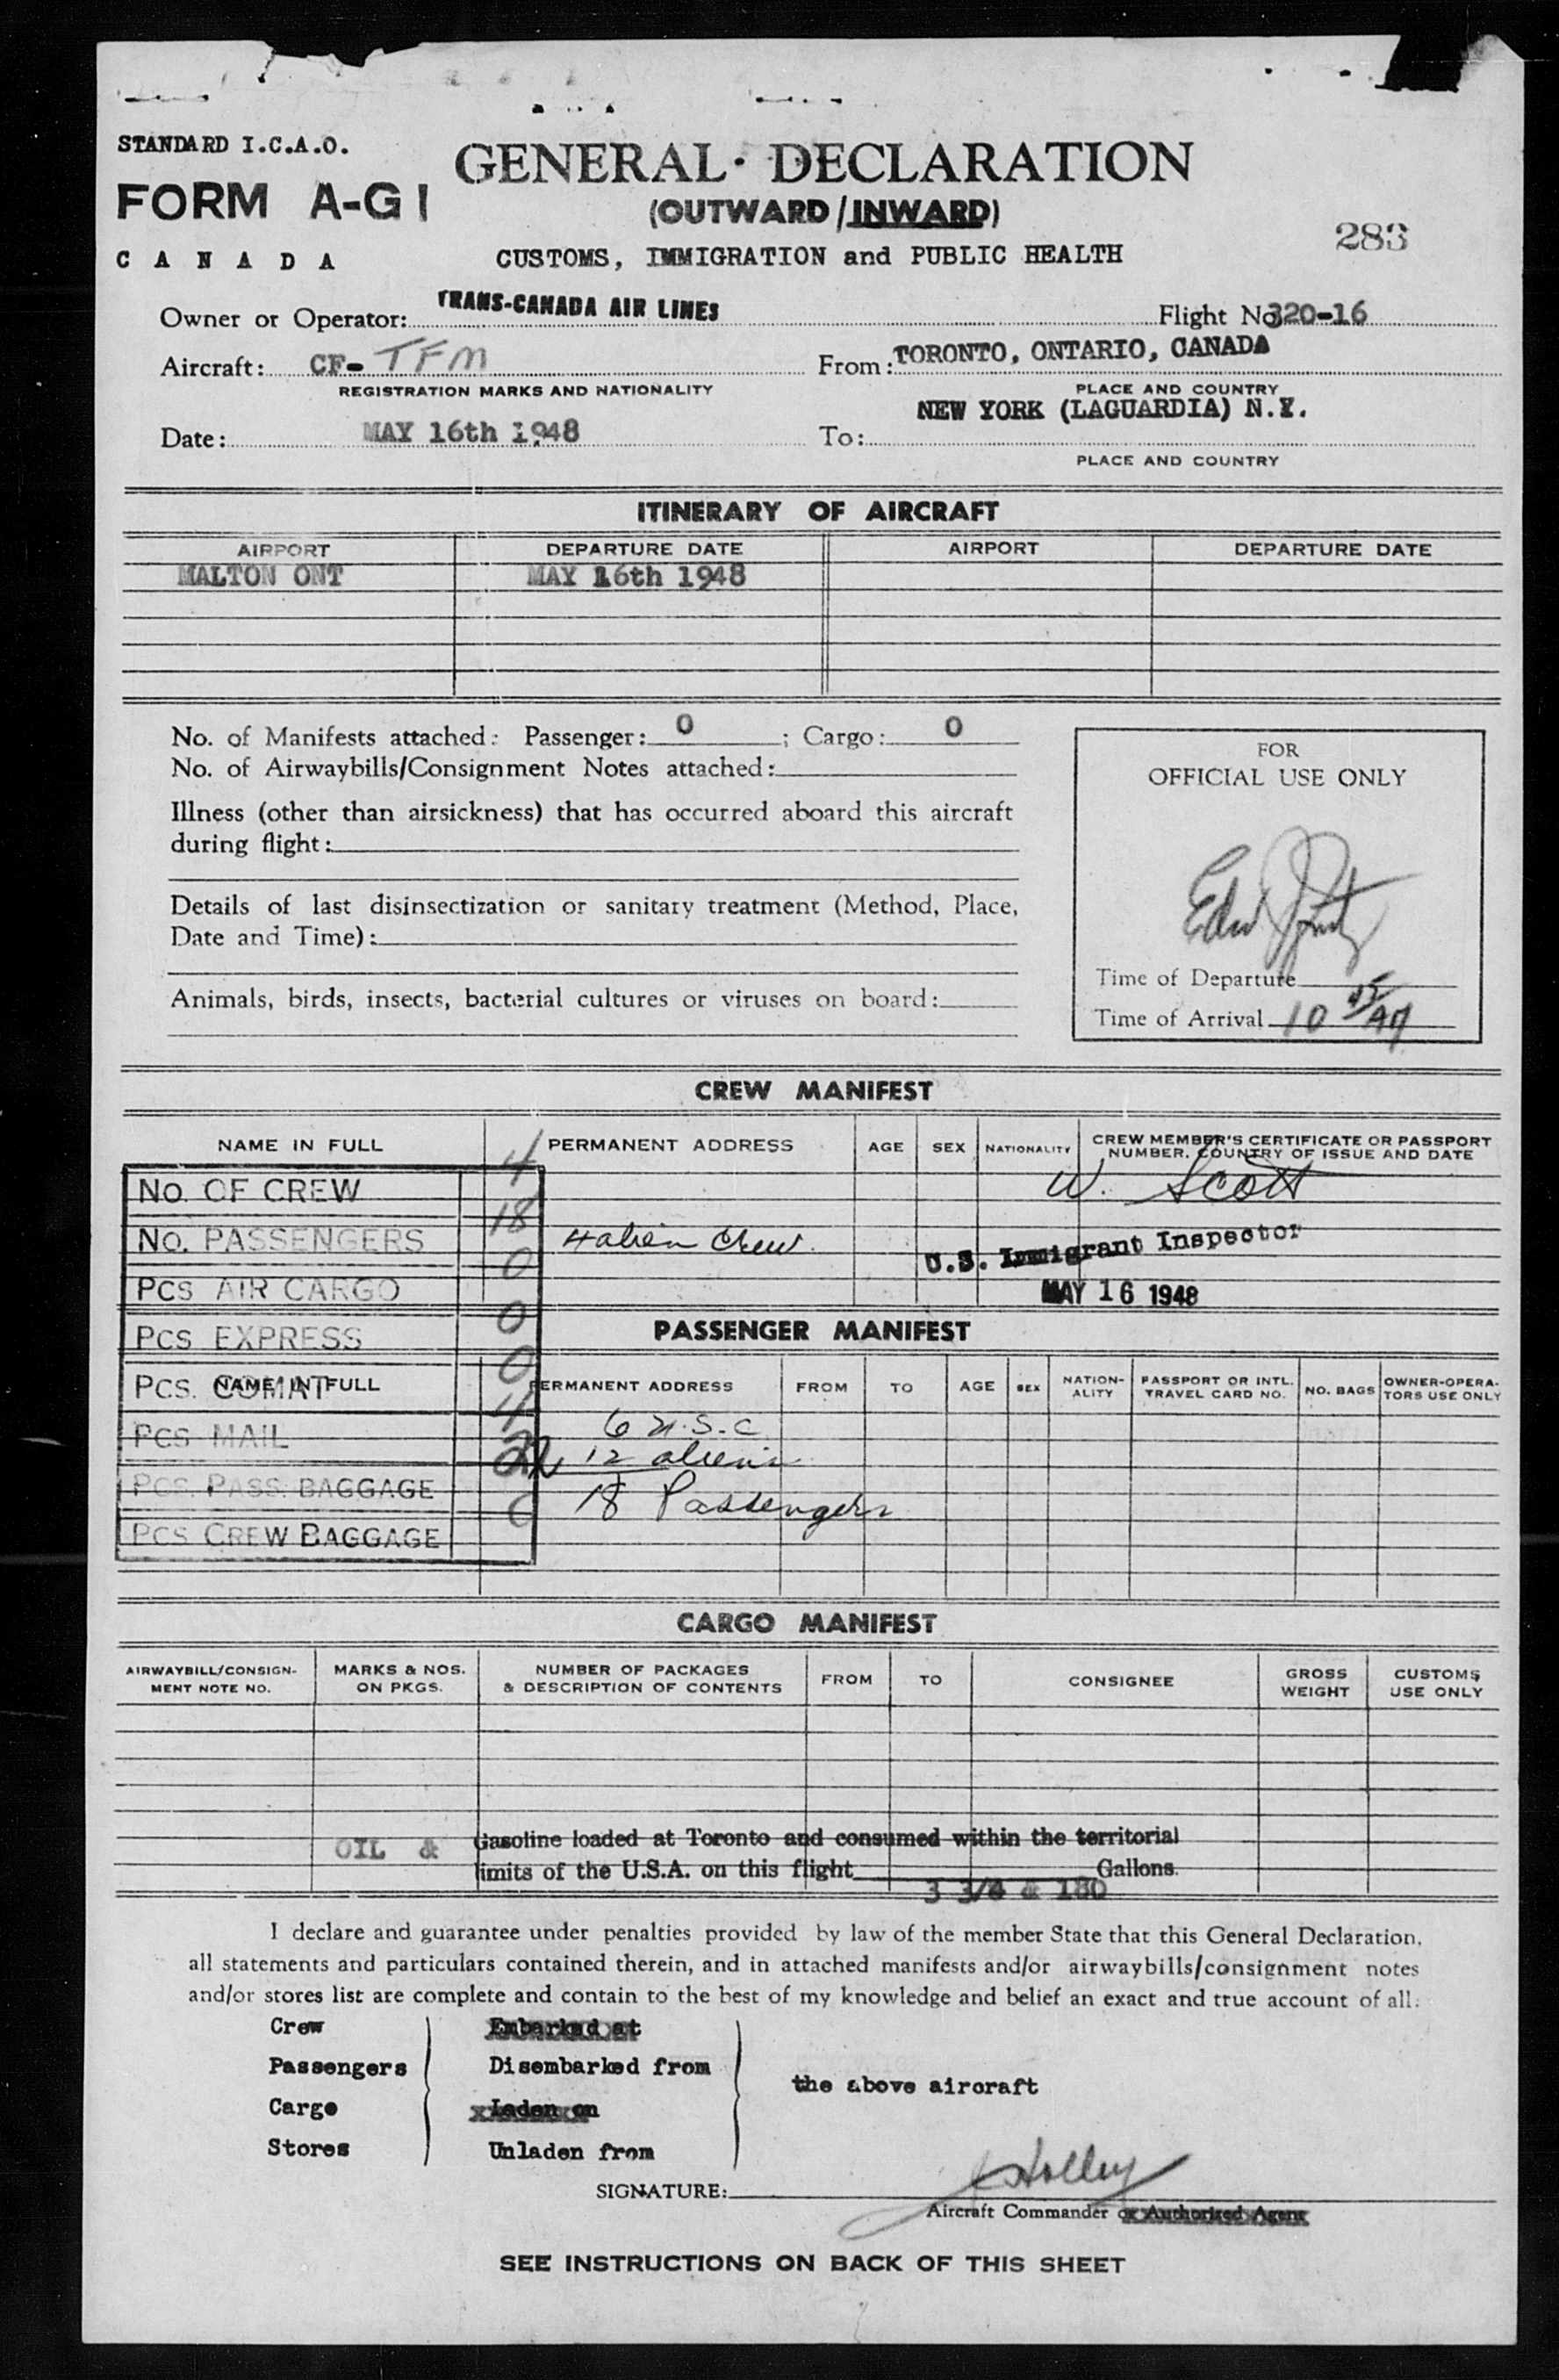 STANDARD I.C.A.O.
FORM A-G1
CANADA
GENERAL DECLARATION
(OUTWARD/INWARD)
CUSTOMS, IMMIGRATION and PUBLIC HEALTH
283
Owner or Operator: TRANS-CANADA AIR LINES Flight No 320-16
Aircraft: CF-TFM From: TORONTO, ONTARIO, CANADA
REGISTRATION MARKS AND NATIONALITY PLACE AND COUNTRY
NEW YORK (LAGUARDIA) N.Y.
Date: MAY 16th 1948 To:
PLACE AND COUNTRY
ITINERARY OF AIRCRAFT
AIRPORT DEPARTURE DATE AIRPORT DEPARTURE DATE
MALTON ONT MAY 16th 1948
No. of Manifests attached: Passenger: 0 ; Cargo: 0
No. of Airwaybills/Consignment Notes attached:
Illness (other than airsickness) that has occurred aboard this aircraft
during flight:
Details of last disinsectization or sanitary treatment (Method, Place,
Date and Time):
Animals, birds, insects, bacterial cultures or viruses on board:
FOR
OFFICIAL USE ONLY
Time of Departure
Time of Arrival 10 45 AM
CREW MANIFEST
NAME IN FULL PERMANENT ADDRESS AGE SEX NATIONALITY CREW MEMBER'S CERTIFICATE OR PASSPORT
NUMBER, COUNTRY OF ISSUE AND DATE
No. OF CREW 4
No. PASSENGERS 18
Pcs AIR CARGO 0
Pcs EXPRESS 0
Pcs. COMAT 0
Pcs MAIL 4
Pcs. PASS. BAGGAGE
Pcs CREW BAGGAGE
4 alien Crew
W. Scott
U.S. Immigrant Inspector
MAY 16 1948
PASSENGER MANIFEST
NAME IN FULL PERMANENT ADDRESS FROM TO AGE SEX NATION-
ALITY PASSPORT OR INTL.
TRAVEL CARD NO. NO. BAGS OWNER-OPERA-
TORS USE ONLY
6 U.S.C
12 aliens
18 Passengers
CARGO MANIFEST
AIRWAYBILL/CONSIGN-
MENT NOTE NO. MARKS & NOS.
ON PKGS. NUMBER OF PACKAGES
& DESCRIPTION OF CONTENTS FROM TO CONSIGNEE GROSS
WEIGHT CUSTOMS
USE ONLY
OIL & Gasoline loaded at Toronto and consumed within the territorial
limits of the U.S.A. on this flight Gallons.
3 3/4 & 180
I declare and guarantee under penalties provided by law of the member State that this General Declaration,
all statements and particulars contained therein, and in attached manifests and/or airwaybills/consignment notes
and/or stores list are complete and contain to the best of my knowledge and belief an exact and true account of all:
Crew Embarked at
Passengers Disembarked from
the above aircraft
Cargo Laden on
Stores Unladen from
SIGNATURE: J Holley
Aircraft Commander or Authorized Agent
SEE INSTRUCTIONS ON BACK OF THIS SHEET